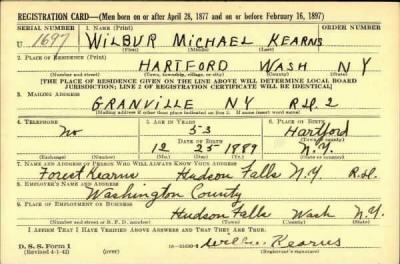 REGISTRATION CARD—(Men born on or after April 28, 1877 and on or before February 16, 1897)
SERIAL NUMBER 1. NAME (Print) ORDER NUMBER
U 1697 WILBUR MICHAEL KEARNS
(First) (Middle) (Last)
2. PLACE OF RESIDENCE (Print)
HARTFORD WASH NY
(Number and street) (Town, township, village, or city) (County) (State)
[THE PLACE OF RESIDENCE GIVEN ON THE LINE ABOVE WILL DETERMINE LOCAL BOARD
JURISDICTION; LINE 2 OF REGISTRATION CERTIFICATE WILL BE IDENTICAL]
3. MAILING ADDRESS
GRANVILLE NY R.D. 2
(Mailing address if other than place indicated on line 2. If same insert word same)
4. TELEPHONE 5. AGE IN YEARS 6. PLACE OF BIRTH
No 53 Hartford
DATE OF BIRTH (Town or county)
12 25 1889 N.Y.
(Exchange) (Number) (Mo.) (Day) (Yr.) (State or country)
7. NAME AND ADDRESS OF PERSON WHO WILL ALWAYS KNOW YOUR ADDRESS
Forest Kearns Hudson Falls N.Y. R.D.
8. EMPLOYER'S NAME AND ADDRESS
Washington County
9. PLACE OF EMPLOYMENT OR BUSINESS
Hudson Falls Wash N.Y.
(Number and street or R. F. D. number) (Town) (County) (State)
I AFFIRM THAT I HAVE VERIFIED ABOVE ANSWERS AND THAT THEY ARE TRUE.
D. S. S. Form 1
(Revised 4-1-42) (over) Kearns
(Registrant's signature)